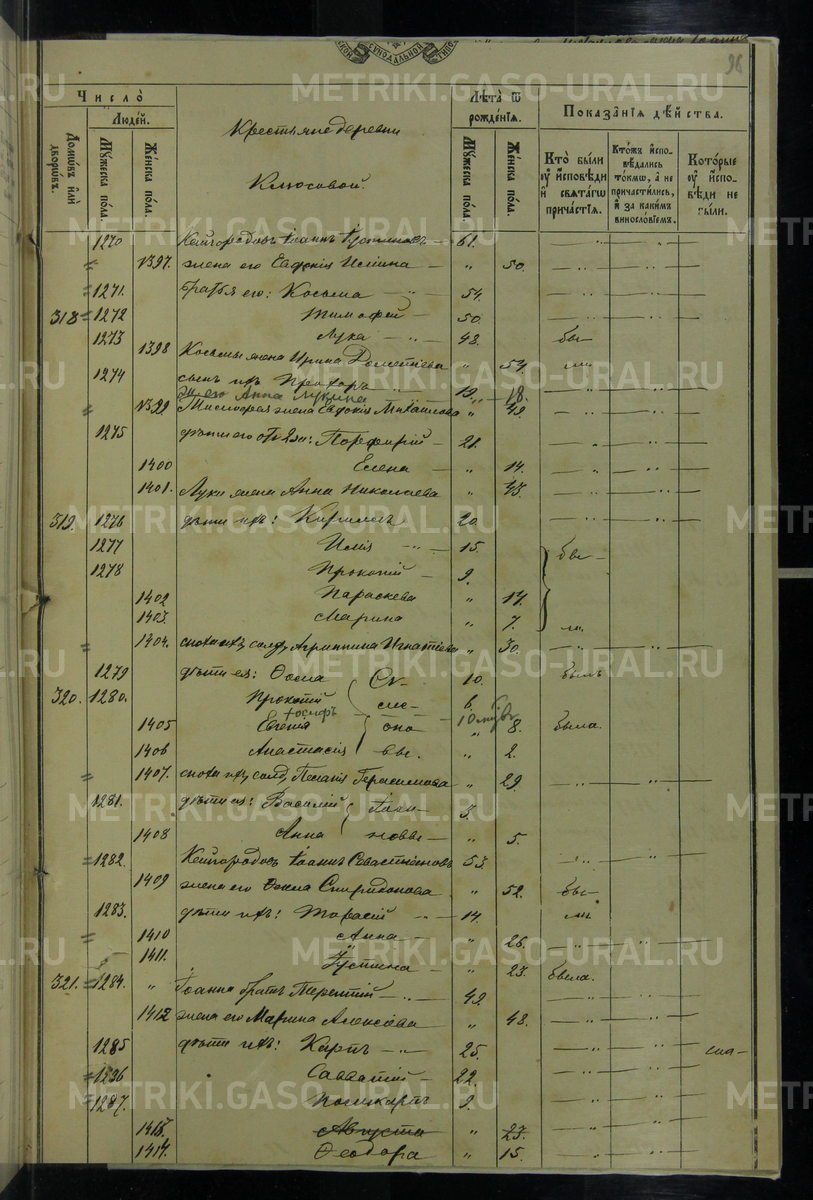 96
Число̀
Людей.
Домѡвъ или дворѡвъ.
Мꙋжеска пола.
Женска пола.
Крестьяне деревни
Клюсовой.
Лѣта ѿ рожденїѧ.
Мꙋжеска пола.
Женска пола.
Показанїѧ дѣйства.
Кто были ꙋ исповѣди и свѧтагѡ причастїѧ.
Ктожъ исповѣдались токмѡ, а не причастились, и за какимъ винословїемъ.
Которые ꙋ исповѣди не были.
1270 Кайгородовъ Іоаннъ — 61. — " — " —
1397. жена его Евдокія Ильина — " 50. — " — " —
1271. братья его: Косьма — " — 54. — " — " —
318 1272 Тимофей — 50. — " — " —
1273 Лука — " — 48. бы-
1398 Косьмы жена Ирина Дометіева " 54. ли
1274 сынъ ихъ — " — 19. — " — " —
жена его Анна Лукина " 18.
1399 жена Евдокія Михайлова " 49. — " — " —
1275 дѣти его отъ 2 ж: Порфирій — 21. — " — " —
1400 Елена — " 14. — " — " —
1401. Луки жена Анна Николаева " 43. — " — " —
319. 1276 дѣти ихъ: Кириллъ 20. — " — " —
1277 Илія — " — 15. бы-
1278 Прокопій — 9.
1402 Параскева " 17.
1403. Марина " 7. ли.
1404. сноха ихъ, солд, Агриппина Игнатіева " 30. — " — " —
1279 дѣти ея: Ѳома Ск- 10. былъ
320. 1280. Прокопій 6.
Іосифъ
1405 Евгенія " 8. была.
1406 Анастасія вы. " 2.
1407. сноха ихъ, солд, Пелагія Герасимова " 29. — " — " —
1281. дѣти ея: Василій 3.
1408 Анна новы- " 5.
1282. Кайгородовъ Іоаннъ Севастіановъ 53. — " — " —
1409 жена его Ѳекла Спиридонова " 52. бы-
1283. дѣти ихъ: Тарасій — " — 14. ли.
1410 Анна — " 26. — " — " —
1411. Іустина — " 23. была.
321. 1284. " Іоанна братъ Терентій — " — 49. — " — " —
1412 жена его Марина Алексѣева " 48. — " — " —
1285 дѣти ихъ: Карпъ — " — 25. — " — " —
1286 Савватій 22. — " — " —
1287. Поликарпъ 9. — " — " —
1413. Августа " 23. — " — " —
1414. Ѳеодора " 15. — " — " —
METRIKI.GASO-URAL.RU